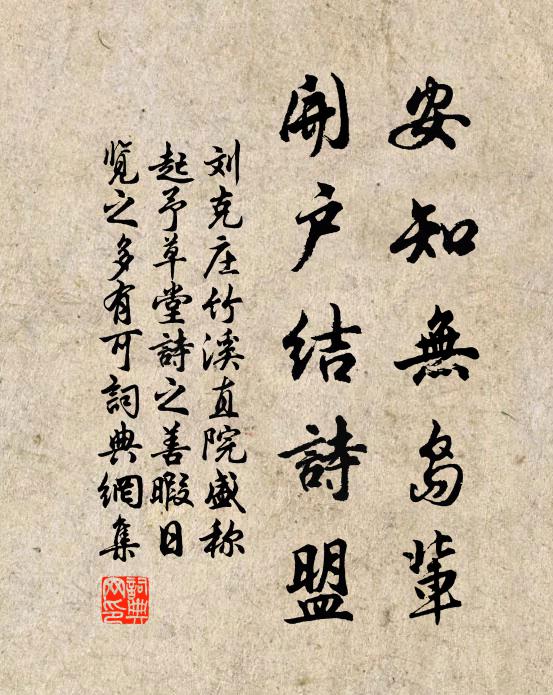 安知無島輩
開户结詩盟
刘克庄竹溪直院盛称
起予草堂詩之善暇日
覽之多有可詞典網集
詞典網印